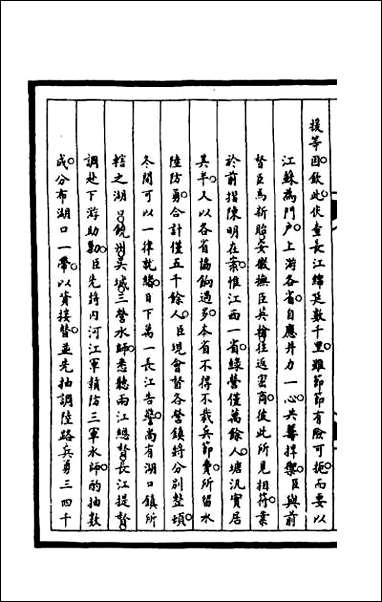 援等因欽此伏查長江綿延數千里雖節節有險可扼而要以
江蘇為門戶上游各省自應并力一心共籌捍禦臣與前
督臣馬新貽安徽撫臣英翰往返密商彼此所見相符業
於前摺陳明在案惟江西一省綠營僅萬餘人塘汛實居
其半人以各省協餉過多本省不得不裁兵節費所留水
陸防勇合計僅五千餘人臣現會督各營鎮將分別整頓
冬間可以一律就緒目下萬一長江告警尚有湖口鎮所
轄之湖口饒州吳城三營水師悉聽兩江總督長江提督
調赴下游助勦臣先將內河江軍精防三軍水師的抽數
成分布湖口一帶以資接替並先抽調陸路兵勇三四千